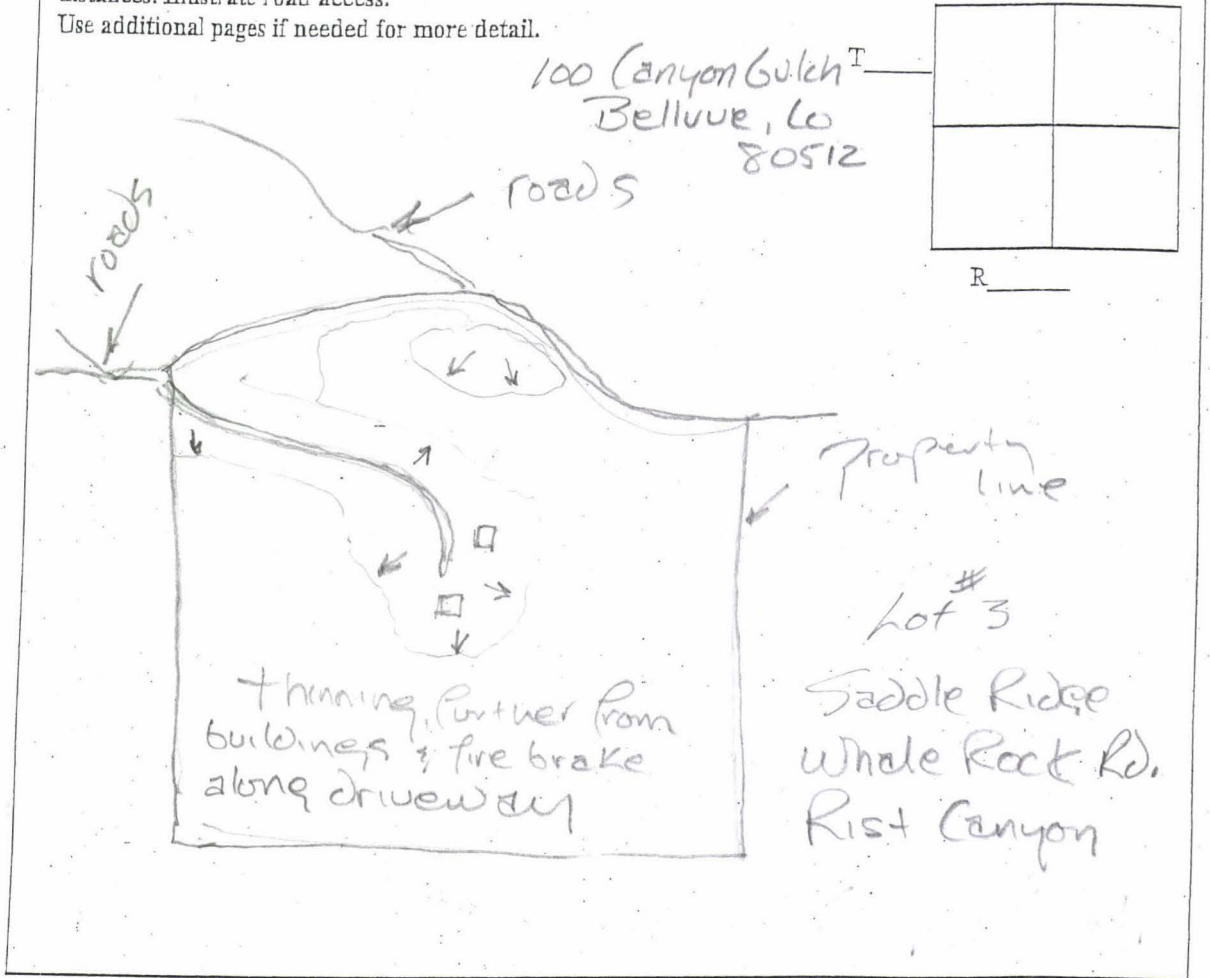 Use additional pages if needed for more detail.
100 Canyon Gulch
Bellvue, Co
80512
T
R
roads
roads
Property
line
Lot #3
Saddle Ridge
Whale Rock Rd.
Rist Canyon
thinning, further from
buildings & fire brake
along driveway